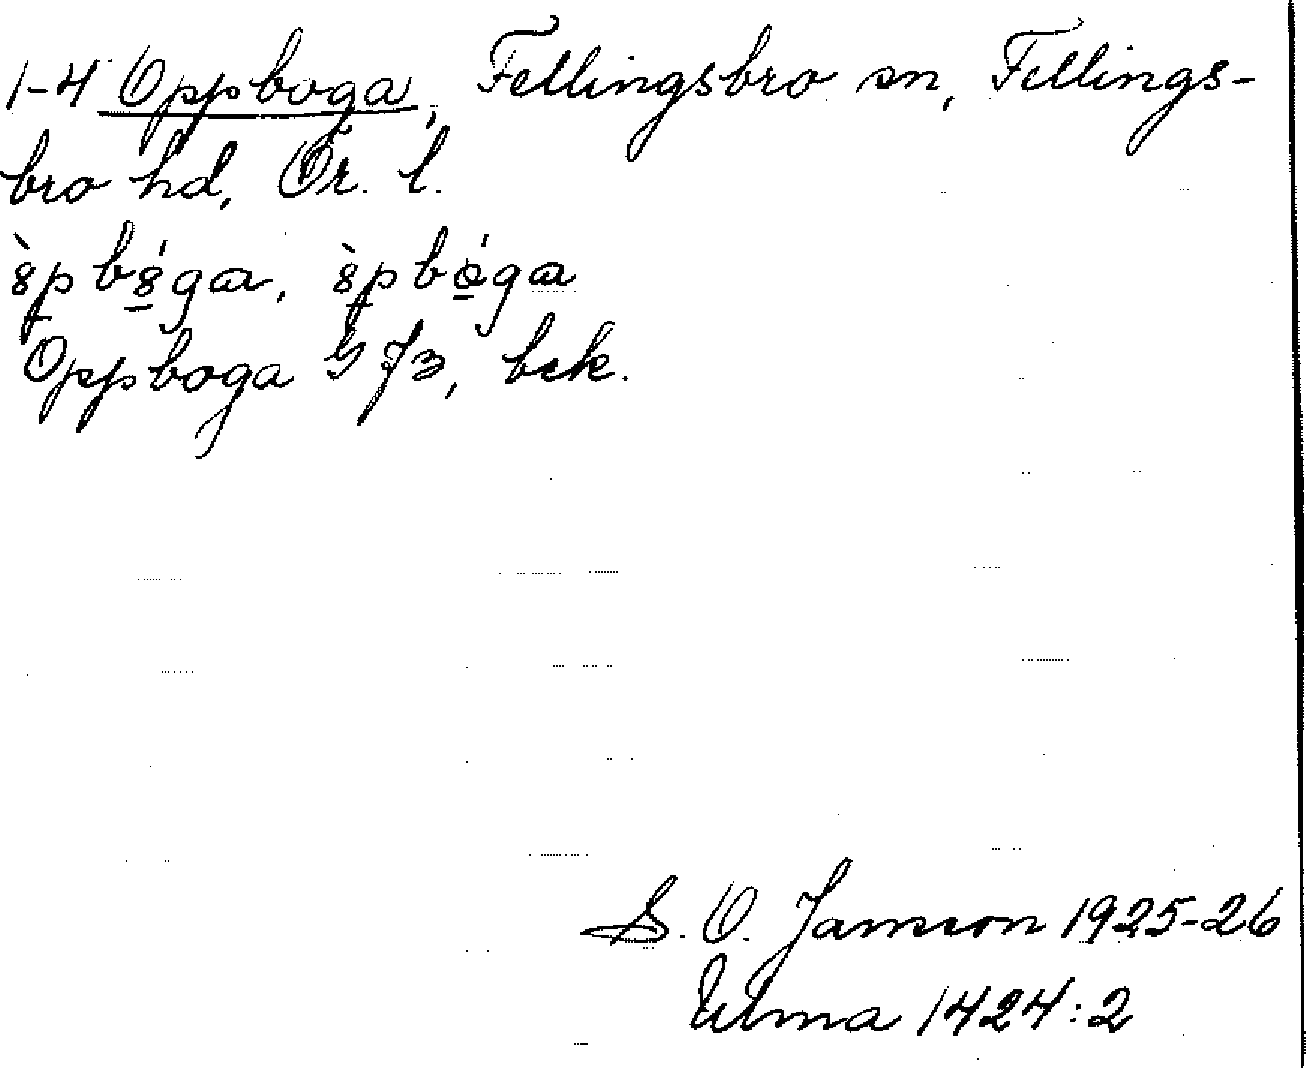 1-4 Oppboga, Fellingsbro sn, Fellings-
bro hd, Ör. l.
Oppboga G J3, bek.
S. O. Jansson 1925-26
Ulma 1424:2